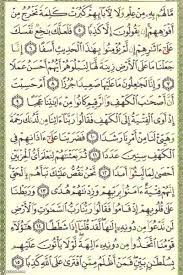 مَّا لَهُم بِهِۦ مِنْ عِلْمٍ وَلَا لِأٓبَآئِهِمْ ۚ كَبُرَتْ كَلِمَةً تَخْرُجُ مِنْ
أَفْوَٰهِهِمْ ۚ إِن يَقُولُونَ إِلَّا كَذِبًا ۝٥ فَلَعَلَّكَ بَٰخِعٌ نَّفْسَكَ
عَلَىٰٓ ءَاثَٰرِهِمْ إِن لَّمْ يُؤْمِنُوا۟ بِهَٰذَا ٱلْحَدِيثِ أَسَفًا ۝٦ إِنَّا
جَعَلْنَا مَا عَلَى ٱلْأَرْضِ زِينَةً لَّهَا لِنَبْلُوَهُمْ أَيُّهُمْ أَحْسَنُ عَمَلًا
۝٧ وَإِنَّا لَجَٰعِلُونَ مَا عَلَيْهَا صَعِيدًا جُرُزًا ۝٨ أَمْ حَسِبْتَ
أَنَّ أَصْحَٰبَ ٱلْكَهْفِ وَٱلرَّقِيمِ كَانُوا۟ مِنْ ءَايَٰتِنَا عَجَبًا ۝٩ إِذْ
أَوَى ٱلْفِتْيَةُ إِلَى ٱلْكَهْفِ فَقَالُوا۟ رَبَّنَآ ءَاتِنَا مِن لَّدُنكَ رَحْمَةً
وَهَيِّئْ لَنَا مِنْ أَمْرِنَا رَشَدًا ۝١٠ فَضَرَبْنَا عَلَىٰٓ ءَاذَانِهِمْ فِى
ٱلْكَهْفِ سِنِينَ عَدَدًا ۝١١ ثُمَّ بَعَثْنَٰهُمْ لِنَعْلَمَ أَىُّ ٱلْحِزْبَيْنِ
أَحْصَىٰ لِمَا لَبِثُوٓا۟ أَمَدًا ۝١٢ نَّحْنُ نَقُصُّ عَلَيْكَ نَبَأَهُم بِٱلْحَقِّ ۚ
إِنَّهُمْ فِتْيَةٌ ءَامَنُوا۟ بِرَبِّهِمْ وَزِدْنَٰهُمْ هُدًى ۝١٣ وَرَبَطْنَا
عَلَىٰ قُلُوبِهِمْ إِذْ قَامُوا۟ فَقَالُوا۟ رَبُّنَا رَبُّ ٱلسَّمَٰوَٰتِ وَٱلْأَرْضِ
لَن نَّدْعُوَا۟ مِن دُونِهِۦٓ إِلَٰهًا ۖ لَّقَدْ قُلْنَآ إِذًا شَطَطًا ۝١٤ هَٰٓؤُلَآءِ
قَوْمُنَا ٱتَّخَذُوا۟ مِن دُونِهِۦٓ ءَالِهَةً ۖ لَّوْلَا يَأْتُونَ عَلَيْهِم
بِسُلْطَٰنٍۭ بَيِّنٍ ۖ فَمَنْ أَظْلَمُ مِمَّنِ ٱفْتَرَىٰ عَلَى ٱللَّهِ كَذِبًا ۝١٥